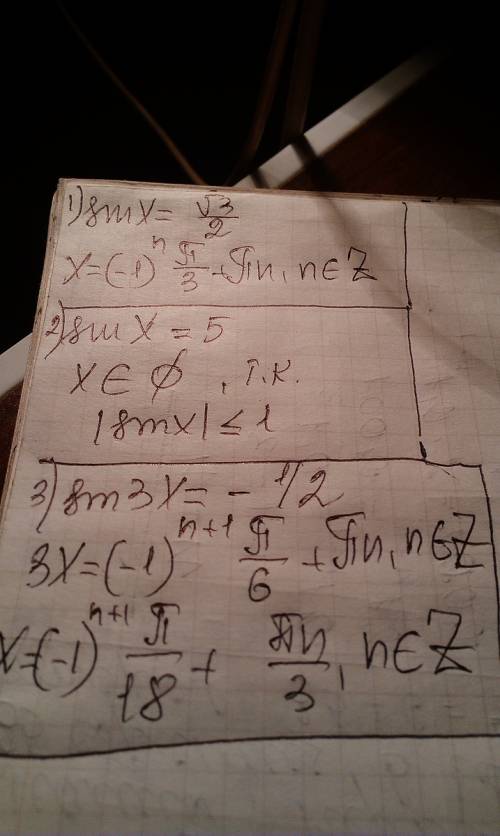 1) sin x = √3/2
x = (-1)^n π/3 + πn, n ∈ Z
2) sin x = 5
x ∈ ∅, т.к.
|sin x| ≤ 1
3) sin 3x = - 1/2
3x = (-1)^(n+1) π/6 + πn, n ∈ Z
x = (-1)^(n+1) π/18 + πn/3, n ∈ Z